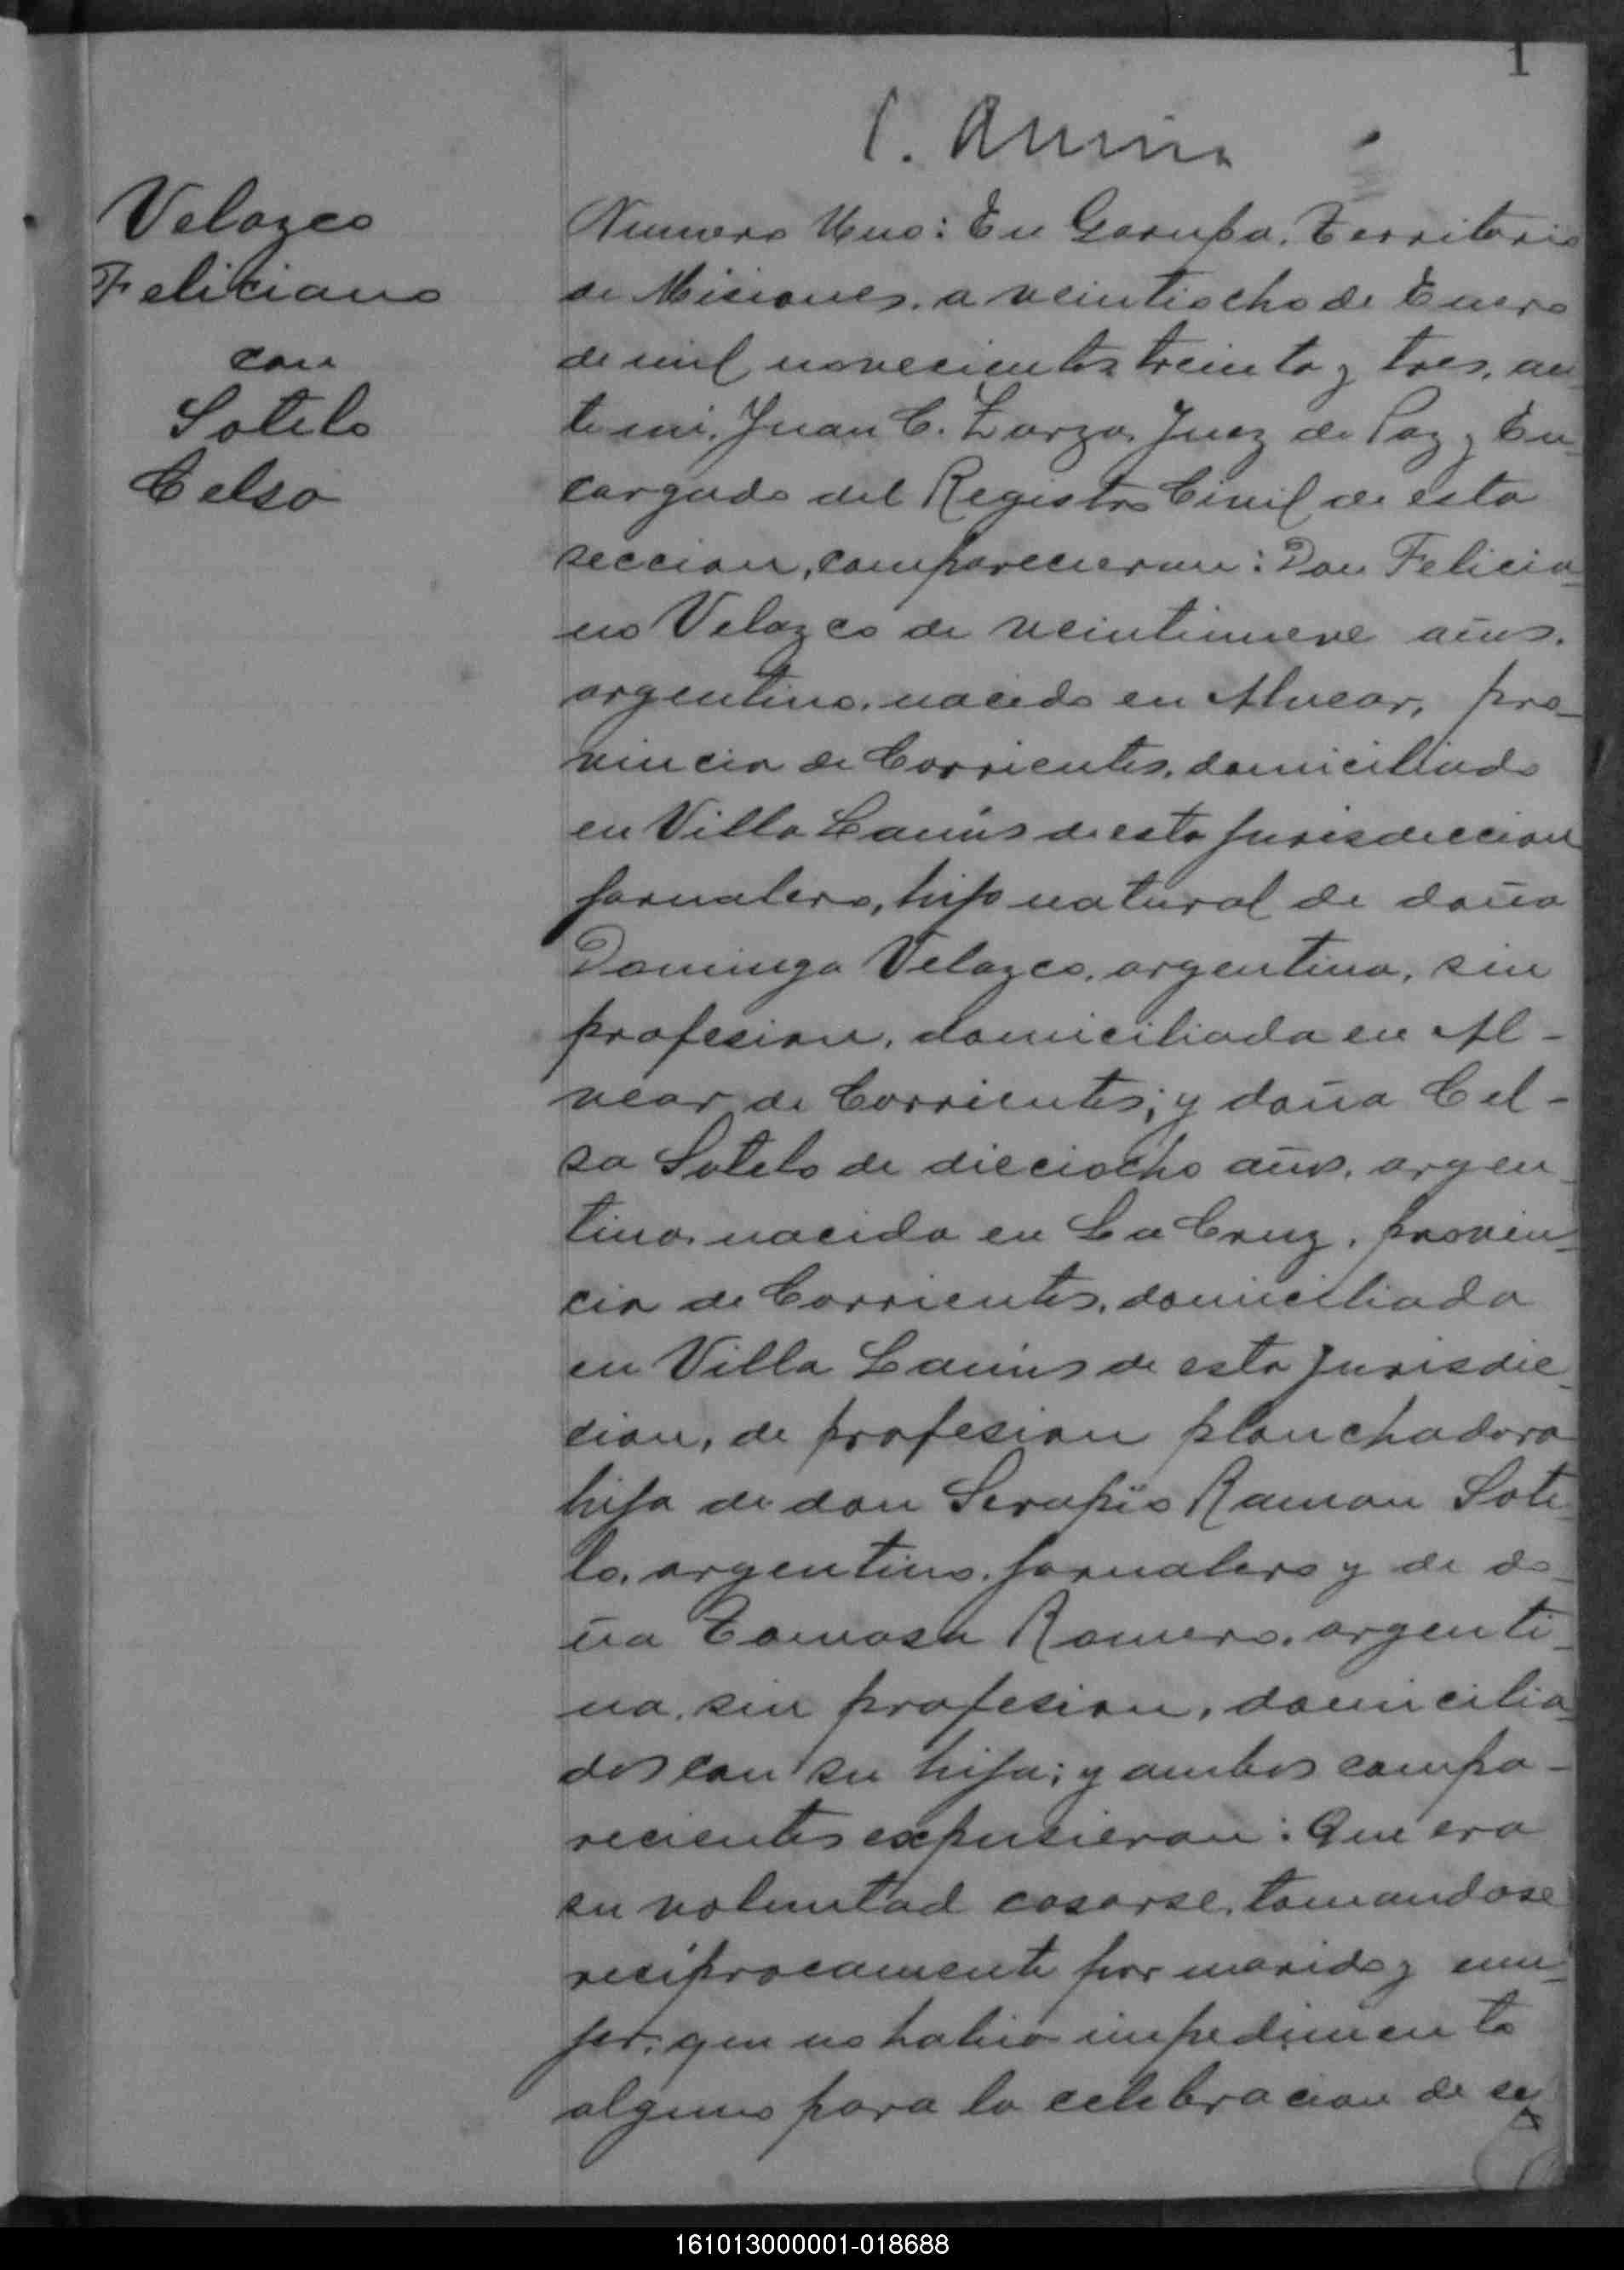 1
Velazco
Feliciano
con
Sotelo
Celsa
Numero Uno: En Garupa, Territorio
de Misiones, a veintiocho de Enero
de mil novecientos treinta y tres, an
te mi, Juan C. Zarza, Juez de Paz y En-
cargado del Registro Civil de esta
seccion, comparecieron: Don Felicia-
no Velazco de veintinueve años,
argentino, nacido en Alvear, pro-
vincia de Corrientes, domiciliado
en Villa Lanús de esta jurisdiccion
jornalero, hijo natural de doña
Dominga Velazco, argentina, sin
profesion, domiciliada en Al-
vear de Corrientes; y doña Cel-
sa Sotelo de dieciocho años, argen-
tina, nacida en La Cruz, provin-
cia de Corrientes, domiciliada
en Villa Lanús de esta jurisdic-
cion, de profesion planchadora
hija de don Serapio Ramon Sote
lo, argentino, jornalero y de do-
ña Tomasa Romero, argenti-
na, sin profesion, domicilia-
dos con su hija; y ambos compa-
recientes expusieron: Que era
su voluntad casarse, tomandose
recíprocamente por marido y mu-
jer; que no habia impedimento
alguno para la celebracion de es
161013000001-018688